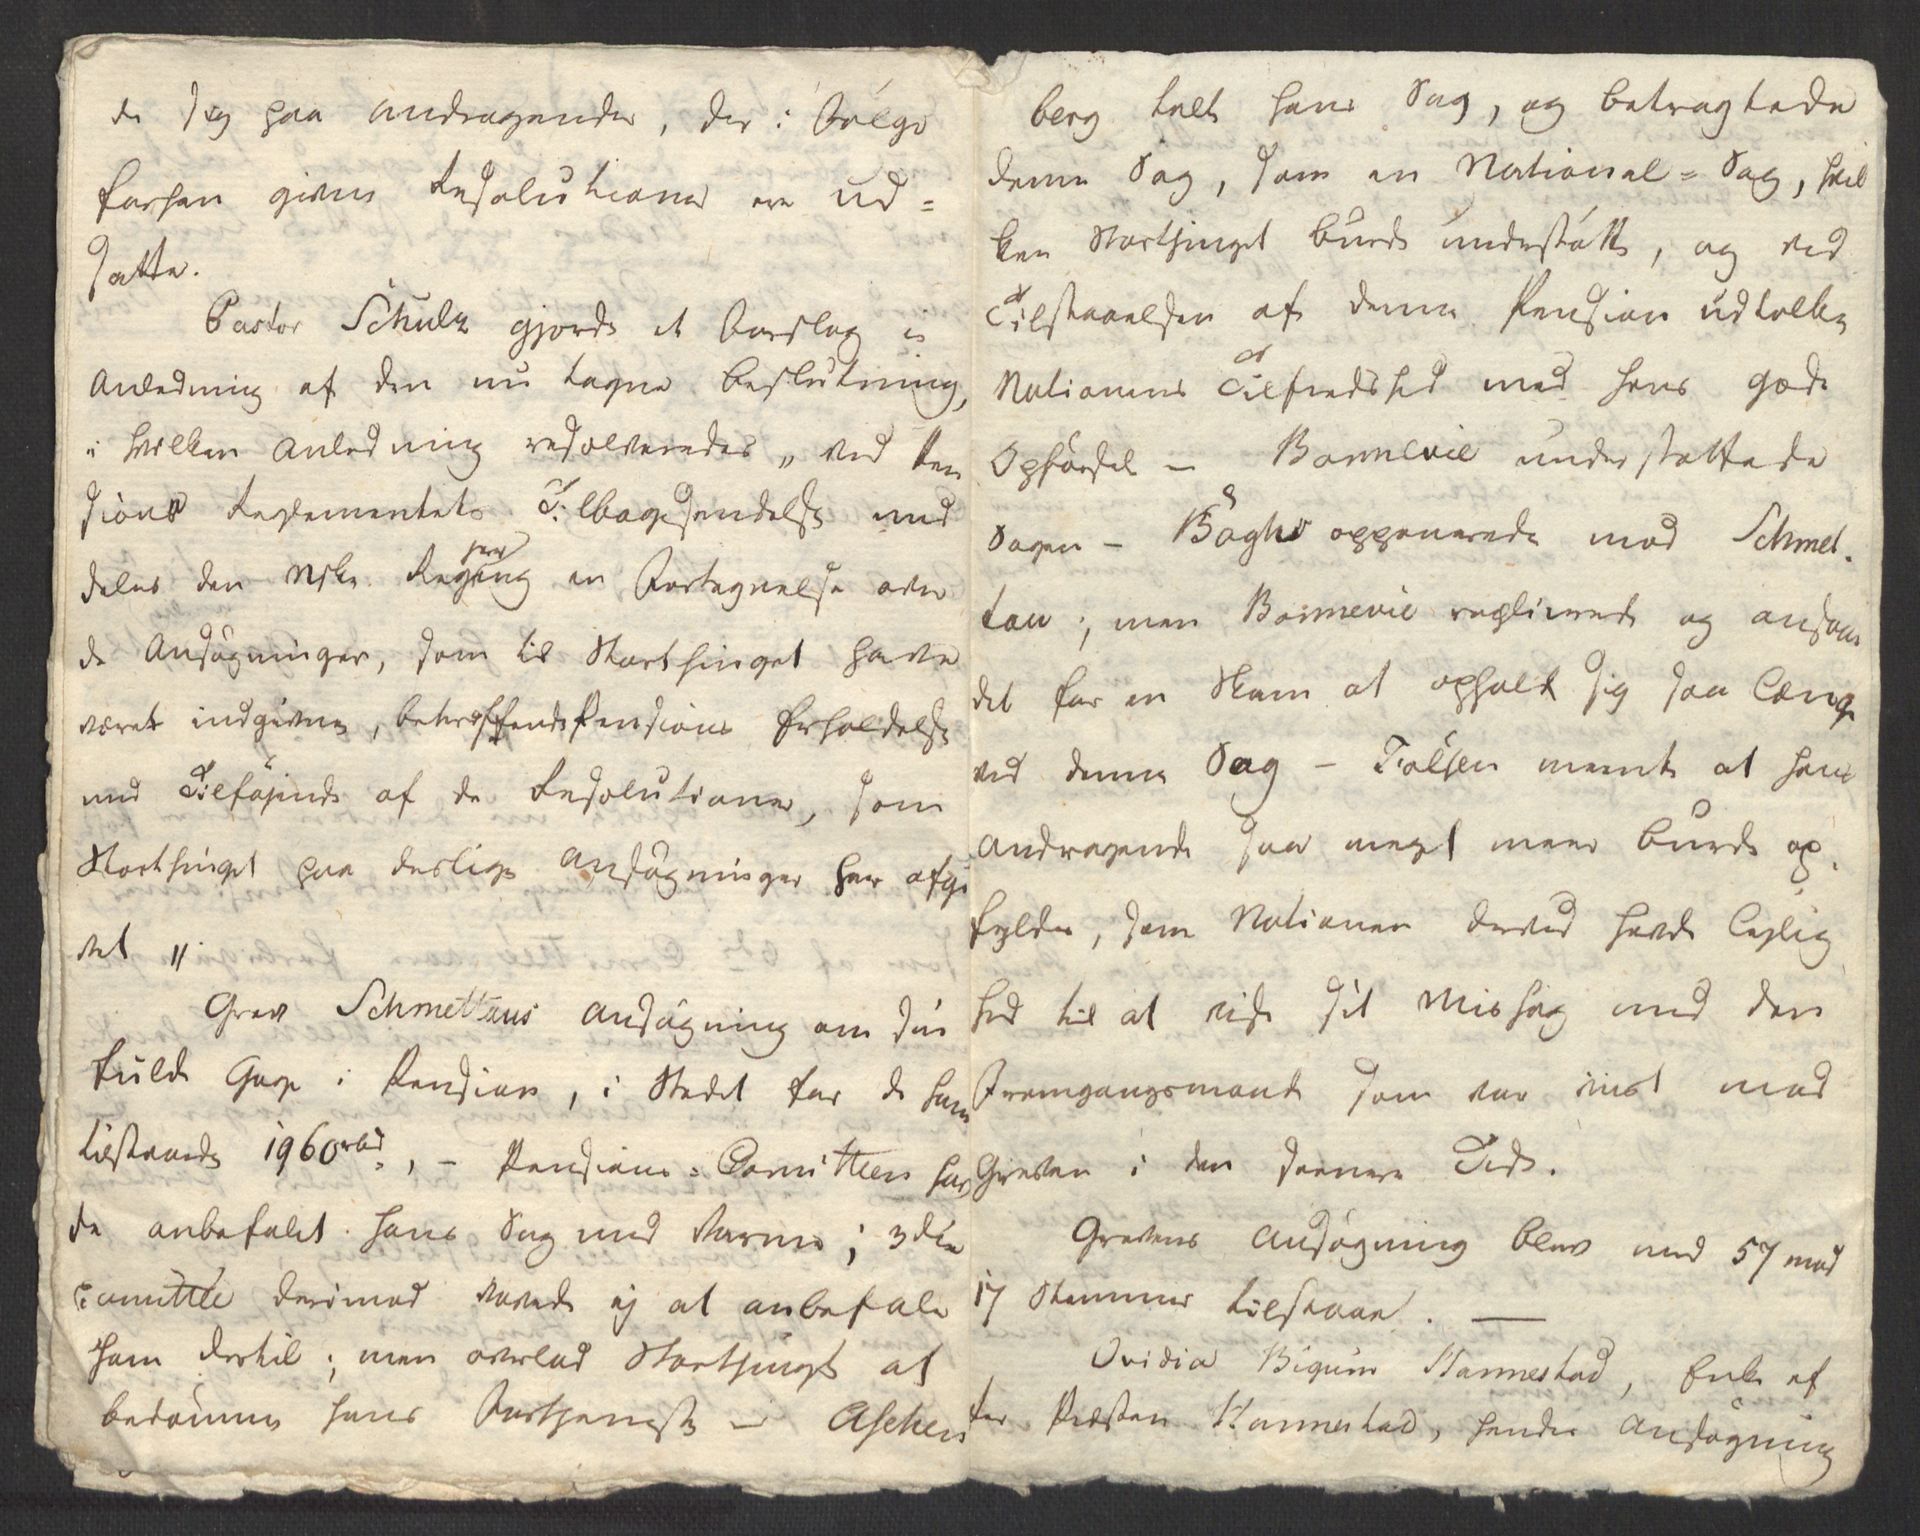 de sig paa Andragender, der i Følge
forhen givne Resolutioner ere ud=
satte.
Pastor Schulz gjorde et Forslag i
Anledning af den nu tagne Beslutning,
i hvilken Anledning resolveredes „ved Pen
sions Reglementets Tilbagesendelse med
deles den Nske. Regjering en Fortegnelse over
de Ansøgninger, som til Storthinget have
været indgivne, betreffende Pensions Erholdelse
med Tilføjende af de Resolutioner, som
Storthinget paa deslige Ansøgninger har afgi
vet "
Grev Schmettaus Ansøgning om sin
fulde Gage i Pension, i Stedet for de ham
tilstaaede 1960 rbd., – Pensions=Comitteen hav
de anbefalet hans Sag med Varme; 3die
Comittee derimod vovede ej at anbefale
ham dertil; men overlod Storthinget at
bedømme hans Fortjeneste – Aschen
berg talte hans Sag, og betragtede
denne Sag, som en National=Sag, hvil
ken Storthinget burde understøtte, og ved
Tilstaaelsen af denne Pension udtolke
Nationens Tilfredshed med hans gode
Opførsel – Bonnevie understøttede
Sagen – Bøgh opponerede mod Schmet-
tau; men Bonnevie replicerede og ansaae
det for en Skam at opholde sig saa længe
ved denne Sag – Falsen meente at hans
Andragende saa meget meer burde op-
fyldes, som Nationen derved havde Lejlig
hed til at vise sit Mishag med den
Fremgangsmaade som var viist mod
Greven i den seenere Tid.
Grevens Ansøgning blev med 57 mod
17 Stemmer tilstaaet. —
Ovidia Bigum Hannestad, Enke ef
ter Præsten Hannestad, hendes Ansøgning